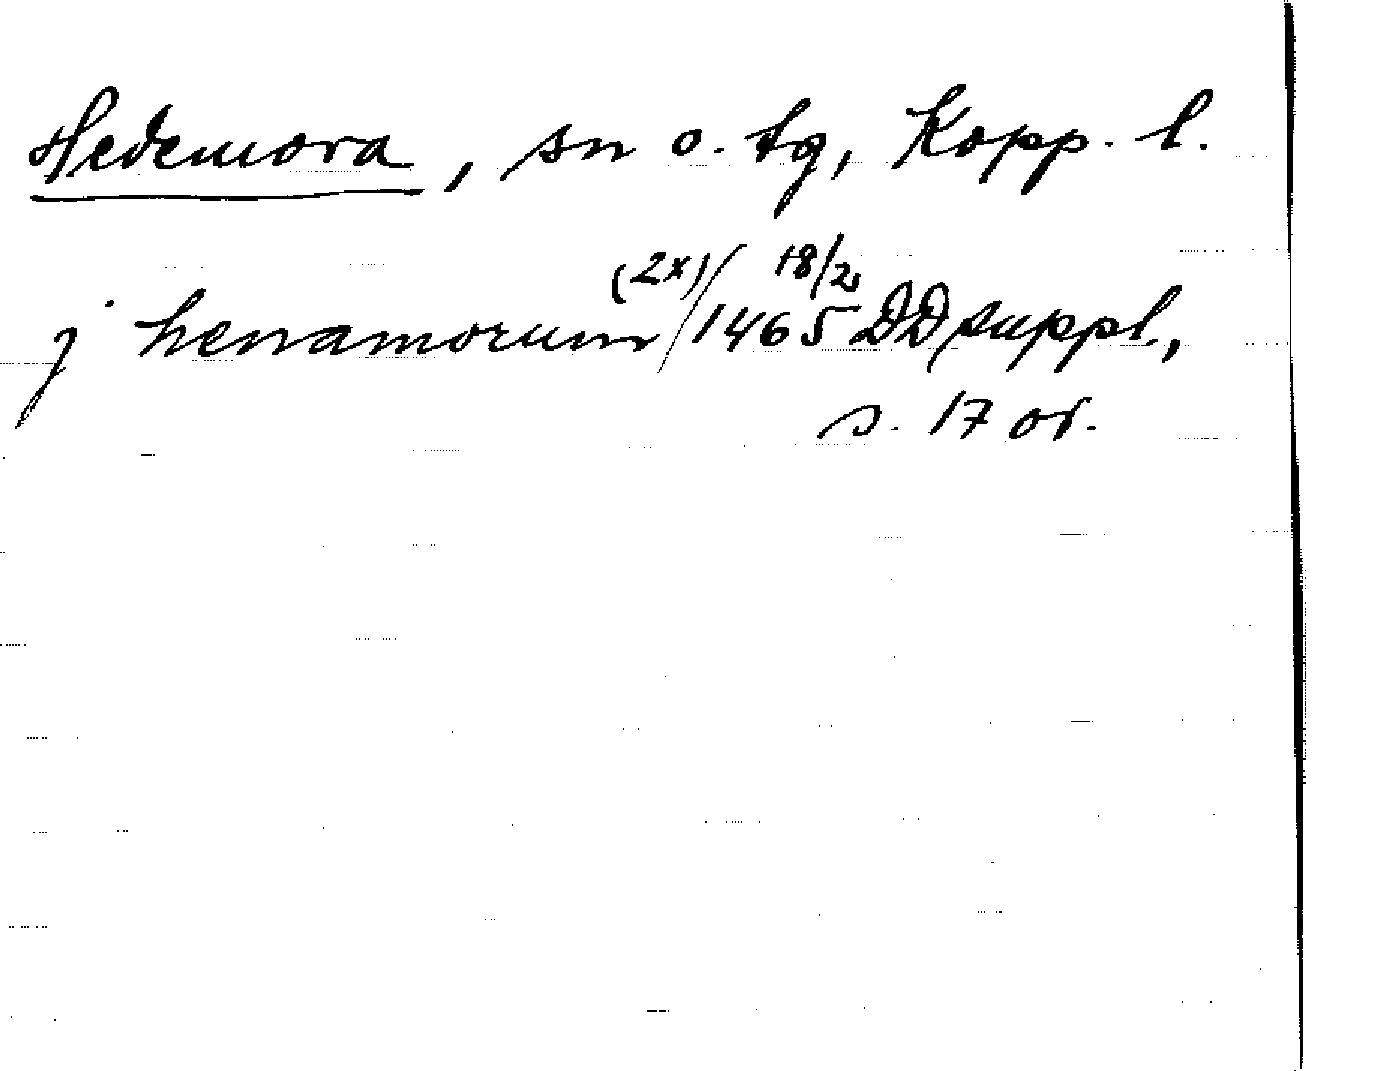 Hedemora, sn o. tg, Kopp. l.
j henamorum (2x) / 18/2 1465 DD suppl,
s. 17 or.